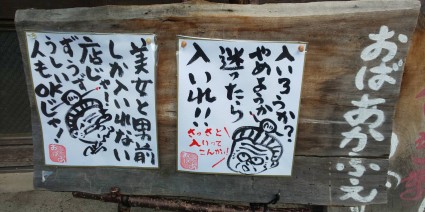 おばあかふぇッ
入いろうか?
やめようか
迷ったら
入いれ!!
さっさと
入いって
こんかい!
美女と男前
しか入いれない
店じゃ!
ずうずう
うしい
人もOKじゃ!